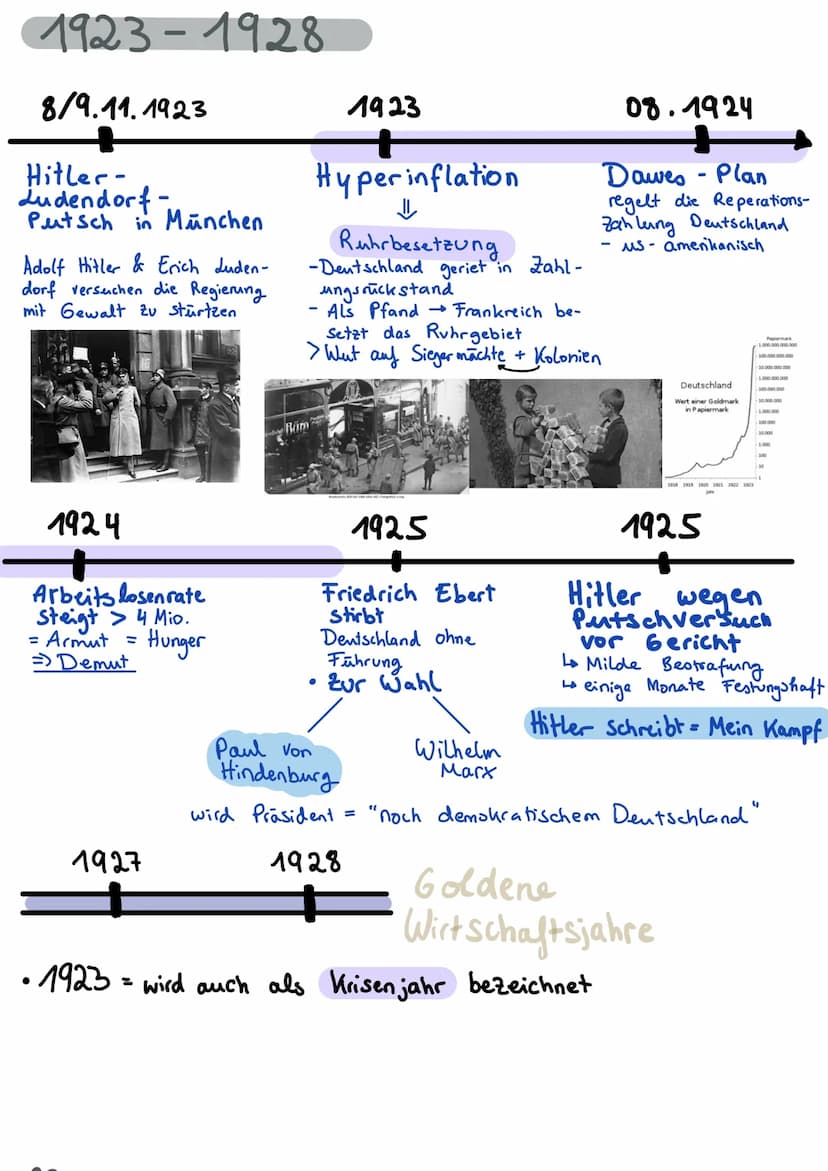 1923-1928
8/9.11.1923
1923
08.1924
Hitler-
Ludendorf-
Putsch in München
Adolf Hitler & Erich Luden-
dorf versuchen die Regierung
mit Gewalt zu stürtzen
Hyperinflation
⇓
Ruhrbesetzung
-Deutschland geriet in Zahl-
ungsrückstand
- Als Pfand → Frankreich be-
setzt das Ruhrgebiet
> Wut auf Siegermächte + Kolonien
Dawes-Plan
regelt die Reperations-
zahlung Deutschland
- us-amerikanisch
Büro
Deutschland
Wert einer Goldmark
in Papiermark
Papiermark
1.000.000.000.000
100.000.000.000
10.000.000.000
1.000.000.000
100.000.000
10.000.000
1.000.000
100.000
10.000
1.000
100
10
1
1918 1919 1920 1921 1922 1923
Jahr
1924
1925
1925
Arbeitslosenrate
steigt > 4 Mio.
= Armut = Hunger
⇒ Demut
Friedrich Ebert
stirbt
Deutschland ohne
Führung
• Zur Wahl
Paul von
Hindenburg
Wilhelm
Marx
wird Präsident = "noch demokratischem Deutschland"
Hitler wegen
Putschversuch
vor Gericht
↳ Milde Bestrafung
↳ einige Monate Festungshaft
Hitler schreibt = Mein Kampf
1927
1928
Goldene
Wirtschaftsjahre
• 1923 = wird auch als Krisenjahr bezeichnet